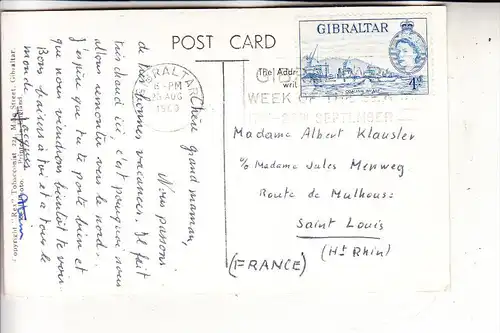 POST CARD
GIBRALTAR
4d
GIBRALTAR
6-PM
25 AUG
The Addr
writ
WEEK OF THE
SEPTEMBER
Chère grand maman,
Nous passons
de très bonnes vacances. Il fait
très chaud ici c'est pourquoi nous
allons remonter vers le nord.
J'espère que tu te porte bien et
que nous viendrons bientôt te voir
Bons baisers à toi et à tout le
monde
Alain
Madame Albert Klausler
c/o Madame Jules Menweg
Route de Mulhouse
Saint Louis
(Ht Rhin)
(FRANCE)
Main Street, Gibraltar